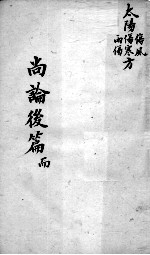 太陽
傷風
傷寒
兩傷
方
尚論後篇
而